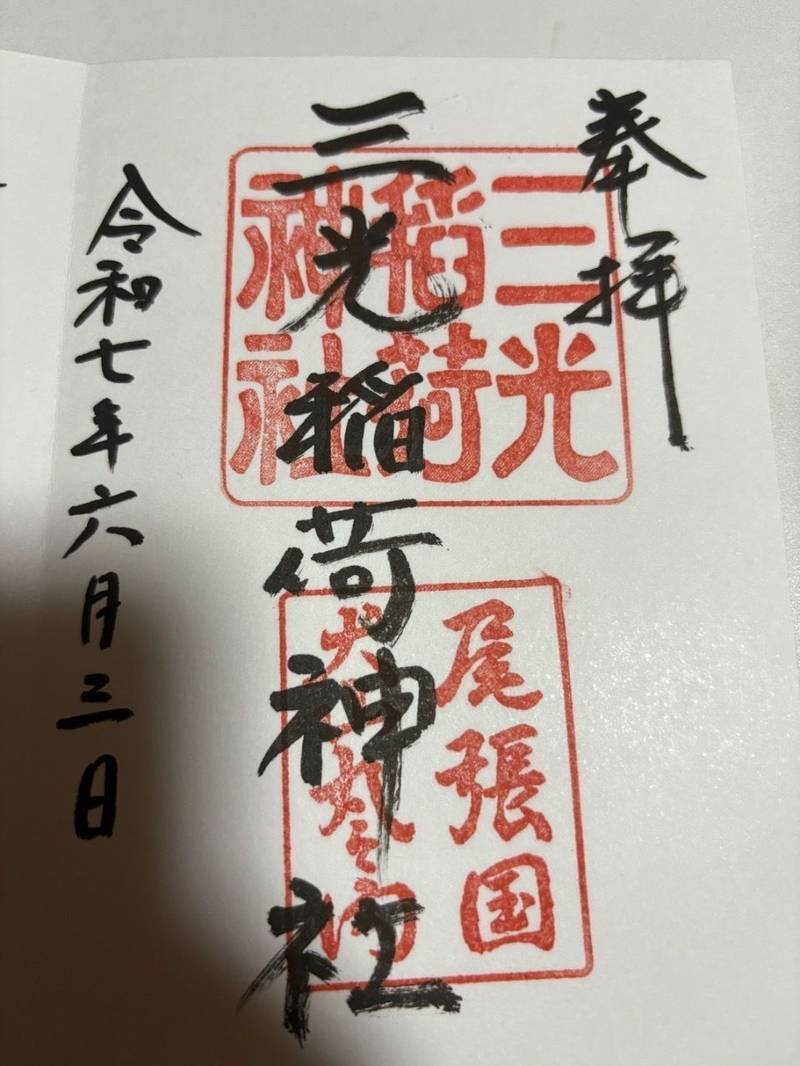 奉拝
三光稲荷神社
令和七年六月三日
三光
稲荷
神社
尾張国
犬山